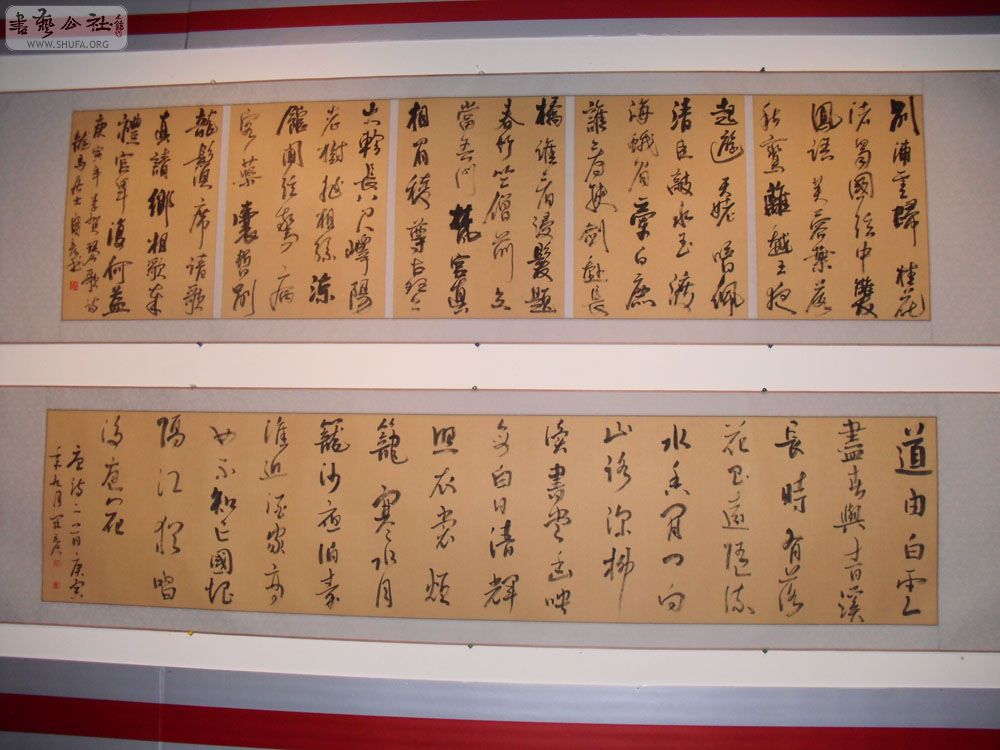 書藝公社
WWW.SHUFA.ORG
別浦雲歸桂花
渚蜀國弦中雙
鳳語芙蓉葉落
秋鸞離越王夜
起遊天姥暗佩
清臣敲水玉渡
海蛾眉牽白鹿
誰看挾劍赴長
橋誰看浸髮題
春竹竺僧前立
當吾門梵宮真
相眉稜尊古琴
大軫長八尺嶧陽
老樹非桐孫涼
館聞弦驚病
客藥囊暫別
龍鬚席請歌
直請卿相歌奉
禮官卑復何益
庚寅年李賀琴歌詩
龍馬居士
道由白雲
盡春與青溪
長時有落
花至遠隨流
水香閑門向
山路深柳
讀書堂幽映
每白日清輝
照衣裳煙
籠寒水月
籠沙夜泊秦
淮近酒家商
女不知亡國恨
隔江猶唱
後庭花
唐詩二首庚寅
年九月